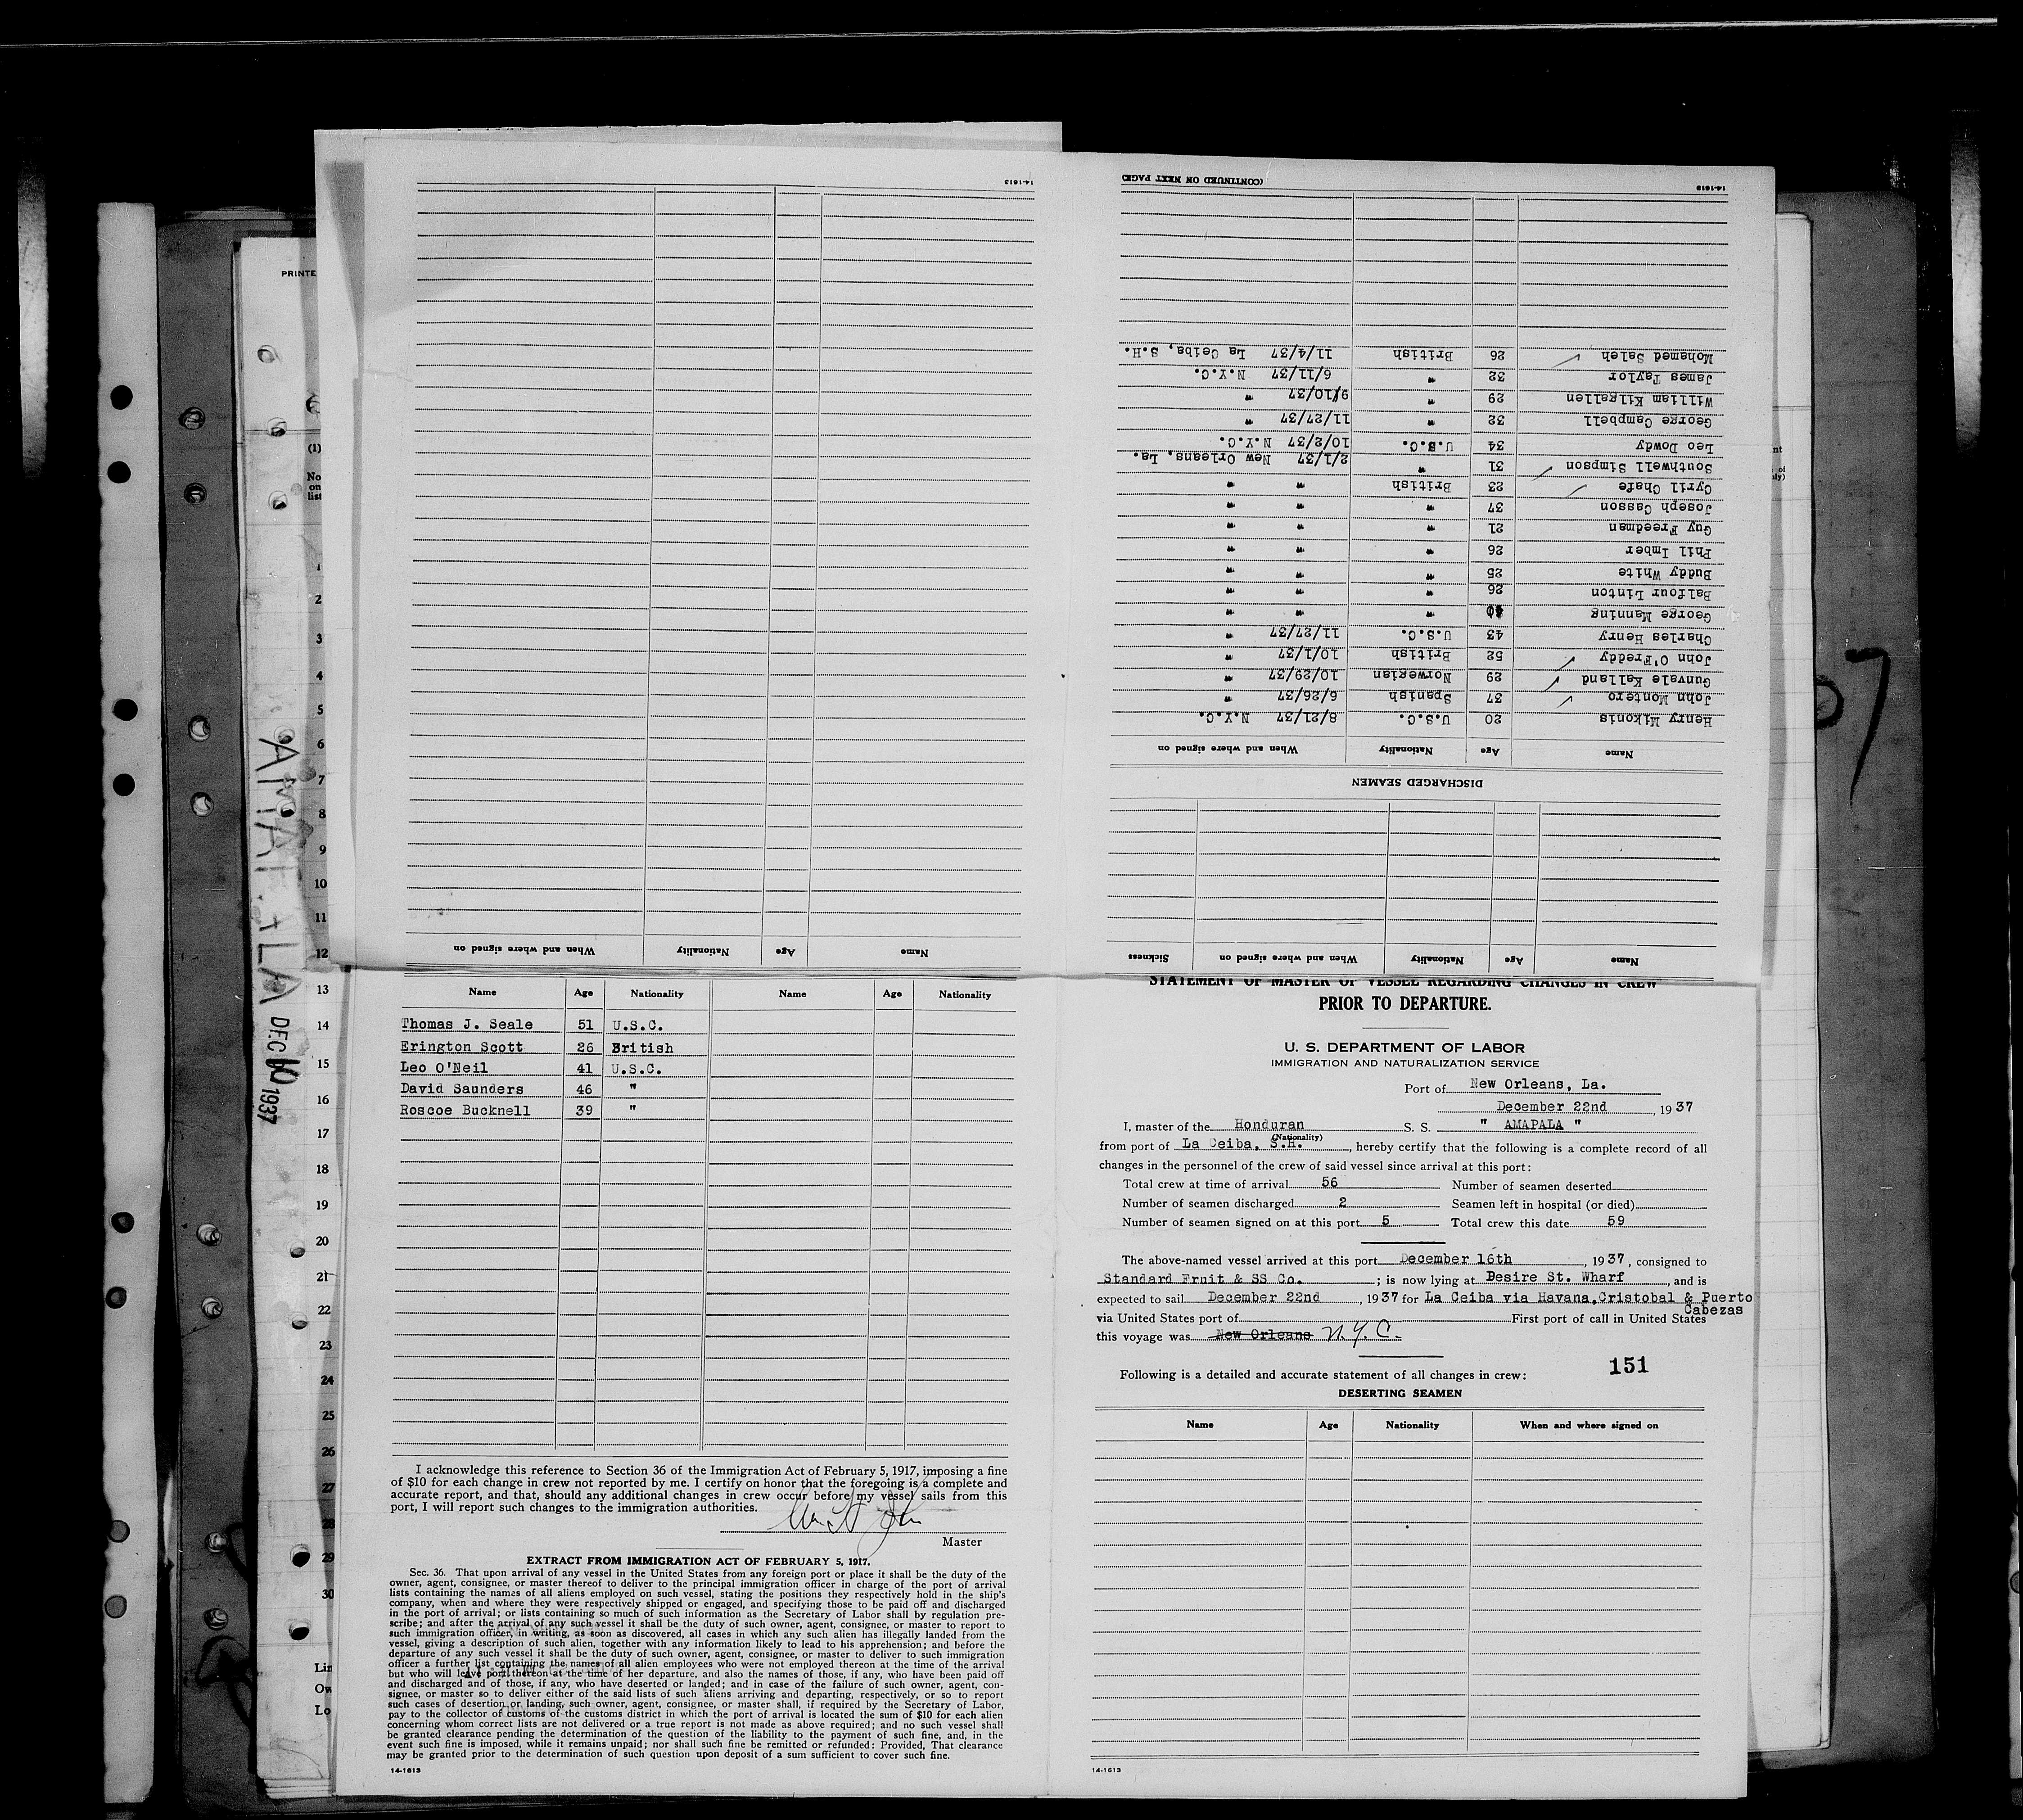 14-1613
Name Age Nationality When and where signed on
(CONTINUED ON NEXT PAGE)
14-1613
Name Age Nationality When and where signed on Sickness
DISCHARGED SEAMEN
Name Age Nationality When and where signed on
Henry Mikonis 20 U.S.C. 8/21/37 N.Y.C.
John Montero 37 Spanish 6/26/37 "
Gunvale Kalland 29 Norwegian 10/29/37 "
John O'Freddy 52 British 10/1/37 "
Charles Henry 43 U.S.C. 11/27/37 "
George Manning " " "
Balfour Linton 26 " " "
Buddy White 25 " " "
Phil Imber 26 " " "
Guy Freedman 21 " " "
Joseph Casson 37 " " "
Cyril Chafe 23 British " "
Southwell Simpson 31 " 2/1/37 New Orleans, La.
Leo Dowdy 34 U.S.C. 10/2/37 N.Y.C.
George Campbell 32 " 11/27/37 "
William Kilgallen 29 " 9/10/37 "
James Taylor 32 " 6/11/37 N.Y.C.
Mohamed Saleh 26 British 11/4/37 La Ceiba, S.H.
PRINTE
(1)
No
on
list
1
2
3
4
5
6
7
8
9
10
11
12
13
14
15
16
17
18
19
20
21
22
23
24
25
26
27
28
29
30
Lin
Ow
Lo
DEC 1937
Name Age Nationality Name Age Nationality
Thomas J. Seale 51 U.S.C.
Erington Scott 26 British
Leo O'Neil 41 U.S.C.
David Saunders 46 "
Roscoe Bucknell 39 "
I acknowledge this reference to Section 36 of the Immigration Act of February 5, 1917, imposing a fine
of $10 for each change in crew not reported by me. I certify on honor that the foregoing is a complete and
accurate report, and that, should any additional changes in crew occur before my vessel sails from this
port, I will report such changes to the immigration authorities.
Master
EXTRACT FROM IMMIGRATION ACT OF FEBRUARY 5, 1917.
Sec. 36. That upon arrival of any vessel in the United States from any foreign port or place it shall be the duty of the
owner, agent, consignee, or master thereof to deliver to the principal immigration officer in charge of the port of arrival
lists containing the names of all aliens employed on such vessel, stating the positions they respectively hold in the ship's
company, when and where they were respectively shipped or engaged, and specifying those to be paid off and discharged
in the port of arrival; or lists containing so much of such information as the Secretary of Labor shall by regulation pre-
scribe; and after the arrival of any such vessel it shall be the duty of such owner, agent, consignee, or master to report to
such immigration officer, in writing, as soon as discovered, all cases in which any such alien has illegally landed from the
vessel, giving a description of such alien, together with any information likely to lead to his apprehension; and before the
departure of any such vessel it shall be the duty of such owner, agent, consignee, or master to deliver to such immigration
officer a further list containing the names of all alien employees who were not employed thereon at the time of the arrival
but who will leave port thereon at the time of her departure, and also the names of those, if any, who have been paid off
and discharged and of those, if any, who have deserted or landed; and in case of the failure of such owner, agent, con-
signee, or master so to deliver either of the said lists of such aliens arriving and departing, respectively, or so to report
such cases of desertion or landing, such owner, agent, consignee, or master shall, if required by the Secretary of Labor,
pay to the collector of customs of the customs district in which the port of arrival is located the sum of $10 for each alien
concerning whom correct lists are not delivered or a true report is not made as above required; and no such vessel shall
be granted clearance pending the determination of the question of the liability to the payment of such fine, and, in the
event such fine is imposed, while it remains unpaid; nor shall such fine be remitted or refunded: Provided, That clearance
may be granted prior to the determination of such question upon deposit of a sum sufficient to cover such fine.
14-1613
STATEMENT OF MASTER OF VESSEL REGARDING CHANGES IN CREW
PRIOR TO DEPARTURE.
U. S. DEPARTMENT OF LABOR
IMMIGRATION AND NATURALIZATION SERVICE
Port of New Orleans, La.
December 22nd, 1937
I, master of the Honduran S. S. " AMAPALA "
(Nationality)
from port of La Ceiba, S.H., hereby certify that the following is a complete record of all
changes in the personnel of the crew of said vessel since arrival at this port:
Total crew at time of arrival 56 Number of seamen deserted
Number of seamen discharged 2 Seamen left in hospital (or died)
Number of seamen signed on at this port 5 Total crew this date 59
The above-named vessel arrived at this port December 16th, 1937, consigned to
Standard Fruit & SS Co.; is now lying at Desire St. Wharf, and is
expected to sail December 22nd, 1937 for La Ceiba via Havana, Cristobal & Puerto
Cabezas
via United States port of First port of call in United States
this voyage was New Orleans N.Y.C.
151
Following is a detailed and accurate statement of all changes in crew:
DESERTING SEAMEN
Name Age Nationality When and where signed on
14-1613